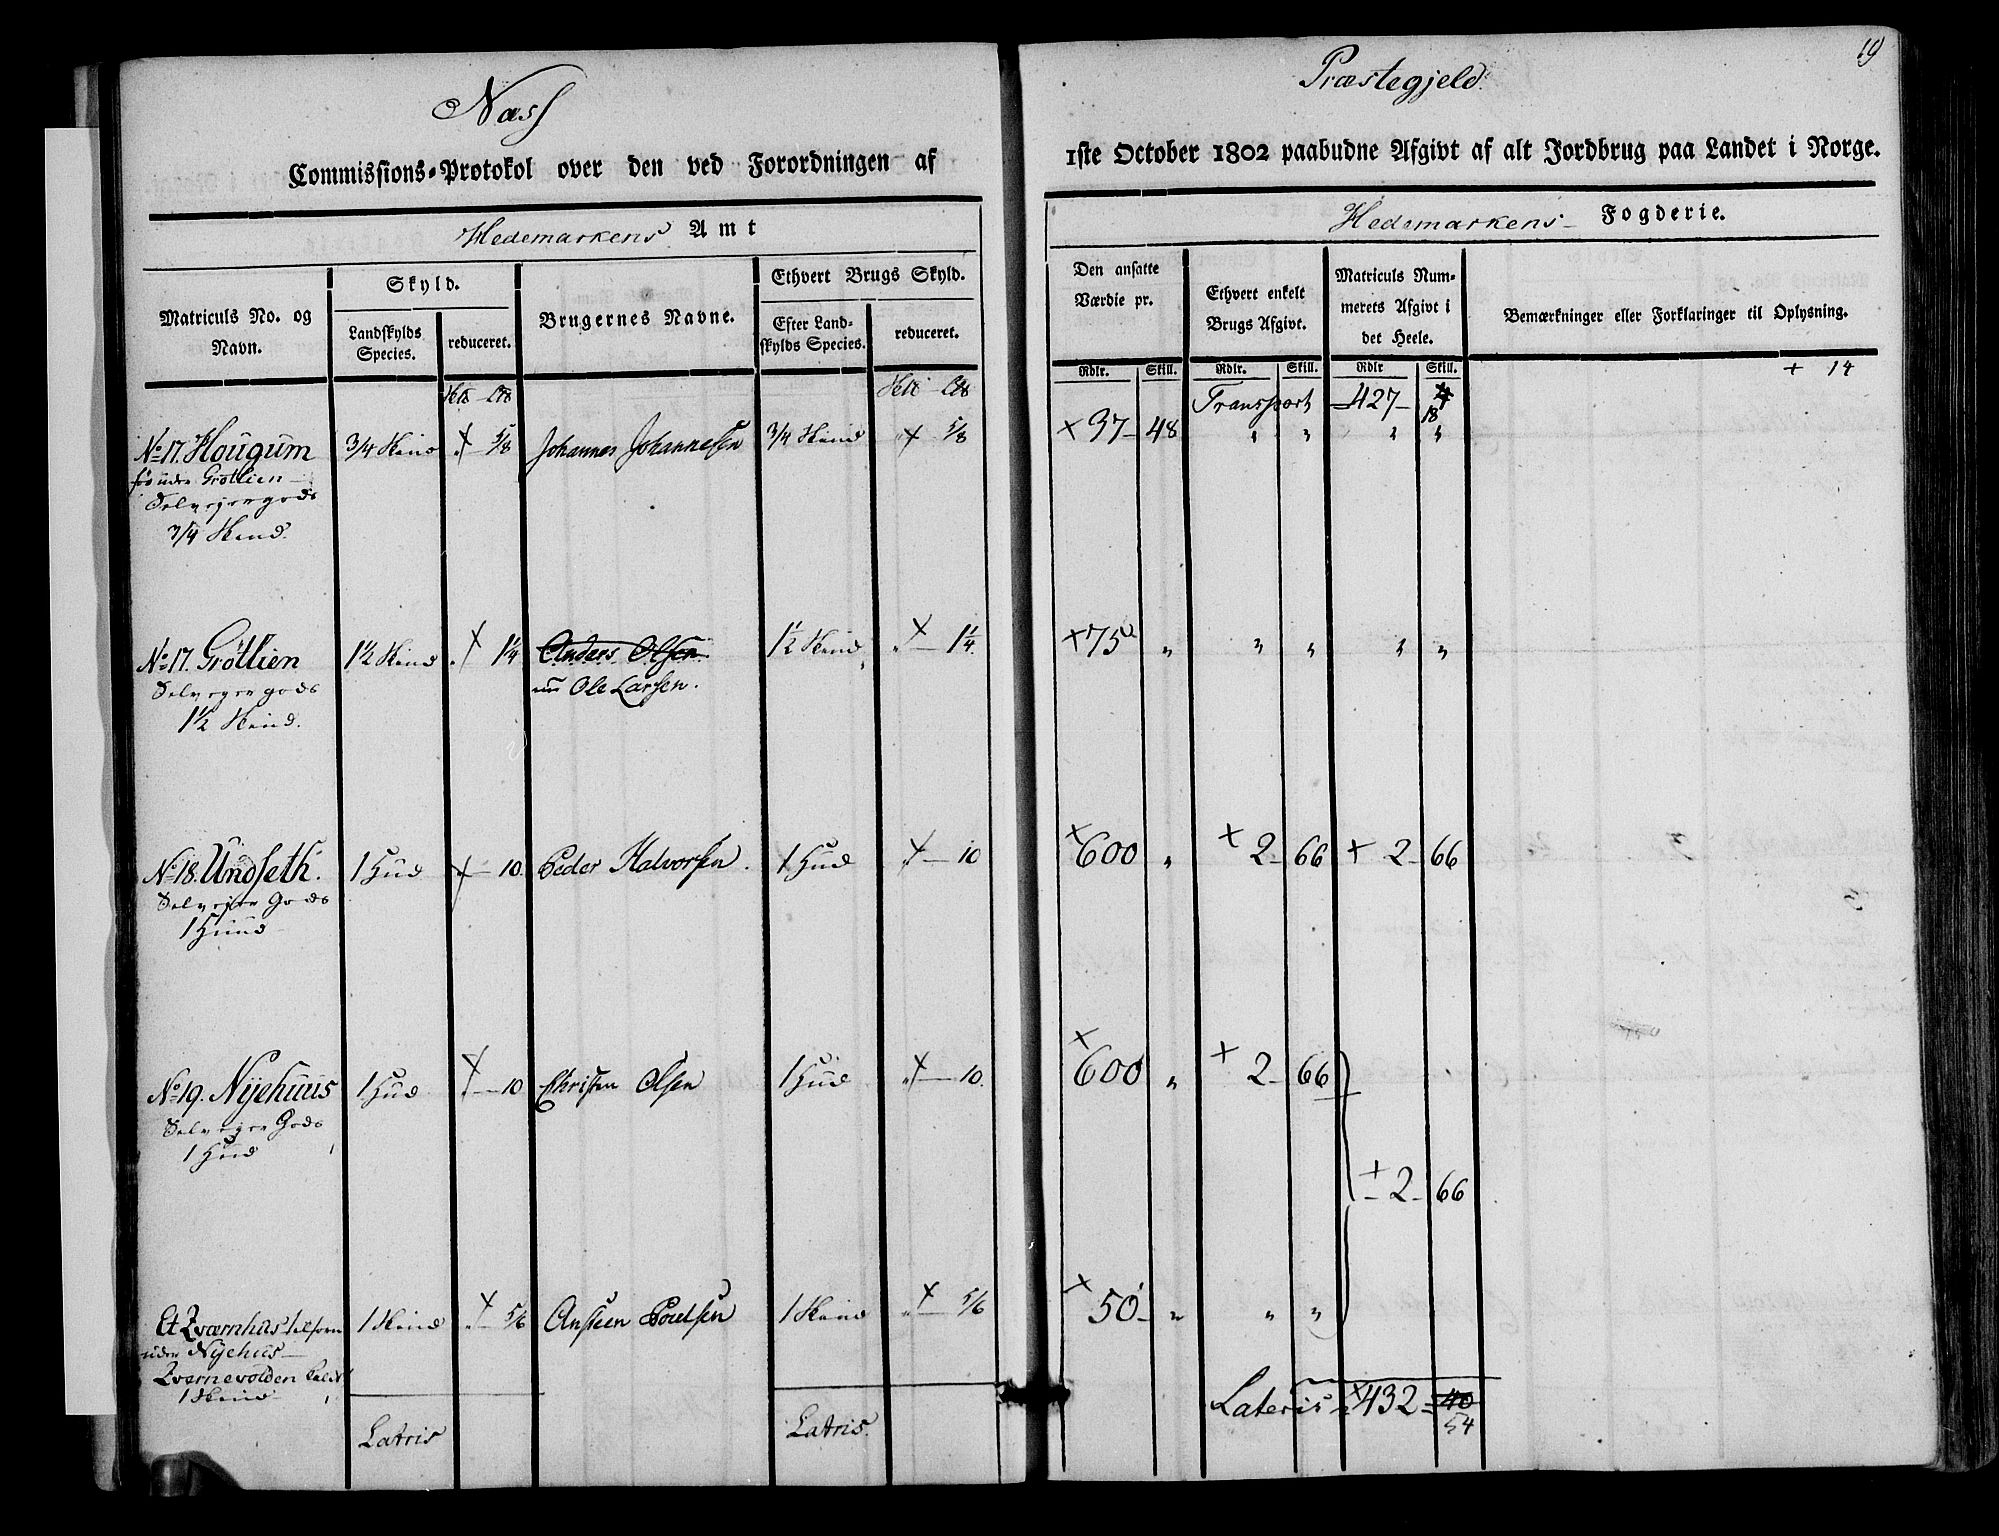 19
Næss
Præstegjeld.
Commissions-Protokol over den ved Forordningen af
1ste October 1802 paabudne Afgivt af alt Jordbrug paa Landet i Norge.
Hedemarkens Amt
Hedemarkens Fogderie.
Matriculs No. og Navn.
Skyld.
Landskylds Species.
reduceret.
Brugernes Navne.
Ethvert Brugs Skyld.
Efter Landskylds Species.
reduceret.
Den ansatte Værdie pr.
Rdlr. Skill.
Ethvert enkelt Brugs Afgivt.
Rdlr. Skill.
Matriculs Nummerets Afgivt i det Heele.
Rdlr Skill.
Bemærkninger eller Forklaringer til Oplysning.
+ 14
Transport 427 18
No 17. Hougum 3/4 Skind 5/8 Johannes Johannesen 3/4 Skind 5/8 + 37 48 " " " "
under Grötlien
Selveyergods
3/4 Skind.
No 17. Grötlien 1½ Skind 1¼ Anders Olsen. 1½ Skind 1¼ + 75 " " " " "
Selveyergods nu Ole Larsen.
1½ Skind.
No 18. Undseth. 1 Hud 10. Peder Halvorsen. 1 Hud 10 + 600 " + 2 66 + 2 66
Selvejer Gods
1 Huud
No 19. Nyehuus 1 Hud 10 Christen Olsen 1 Hud 10. + 600 " + 2 66
Selveyer Gods
1 Hud
+ 2 66
Et Qværnhus 1 Skind 5/6 Ansteen Poulsen 1 Skind 5/6 + 50 " " "
under Nyehus
Qvernevolden
1 Skind
Latris Latris. Lateris + 432 40
54